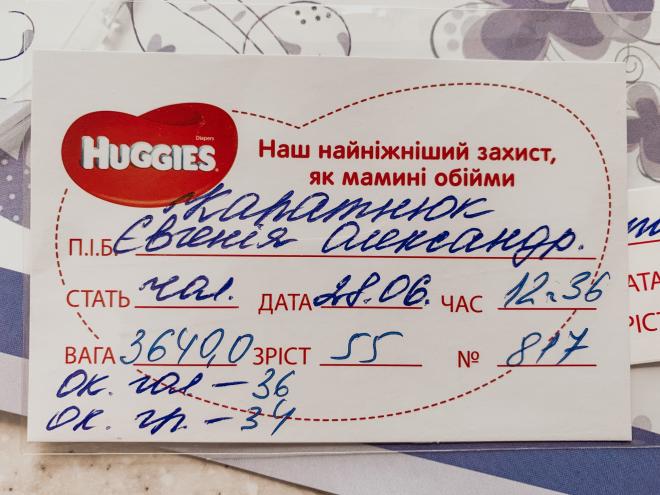 Diapers
HUGGIES
Наш найніжніший захист,
як мамині обійми
Каратнюк
П.І.Б Євгенія Олександр.
СТАТЬ чол. ДАТА 28.06. ЧАС 12.36
ВАГА 3640,0 ЗРІСТ 55 № 817
ок. гол – 36
ок. гр. – 34
АТА